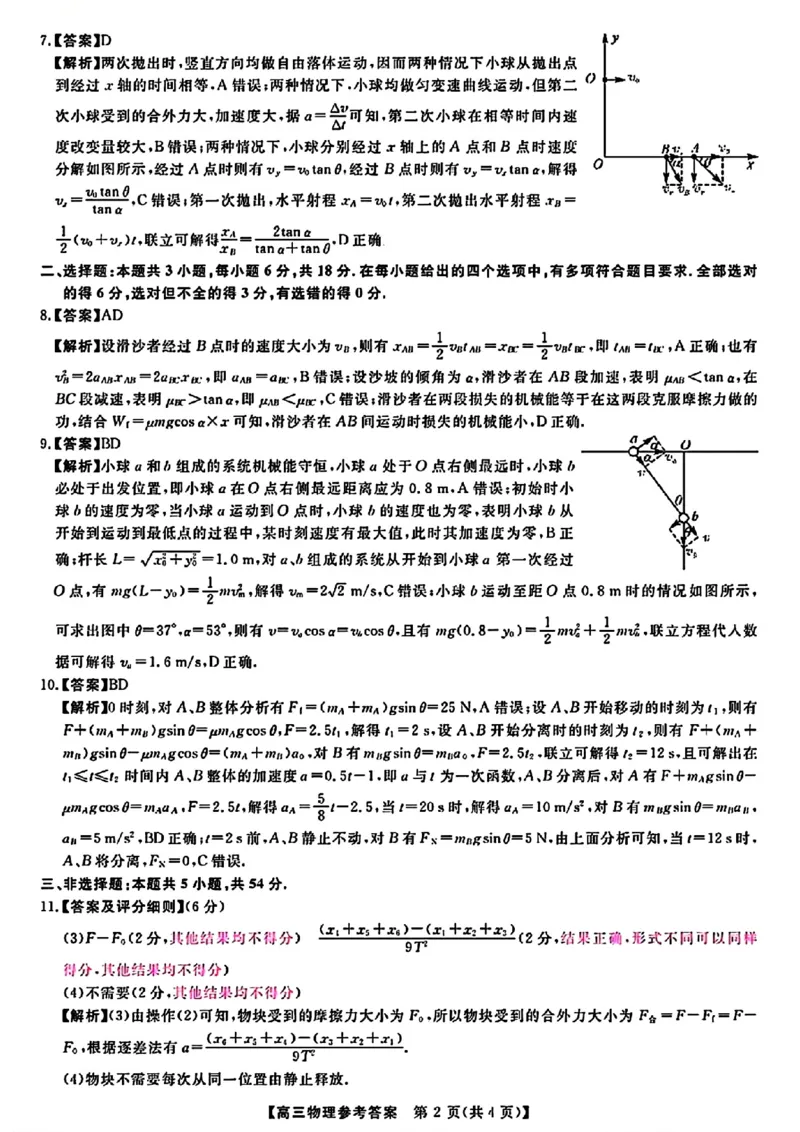 7.【答案】D
【解析】两次抛出时,竖直方向均做自由落体运动,因而两种情况下小球从抛出点
到经过 x 轴的时间相等,A 错误;两种情况下,小球均做匀变速曲线运动,但第二
次小球受到的合外力大,加速度大,据 a=Δv/Δt可知,第二次小球在相等时间内速
度改变量较大,B错误;两种情况下,小球分别经过 x 轴上的 A 点和 B 点时速度
分解如图所示,经过 A 点时则有 vy=v0tan θ,经过 B 点时则有 vy=vxtan α,解得
vx=v0tan θ/tan α,C 错误;第一次抛出,水平射程 xA=v0t,第二次抛出水平射程 xB=
1/2(v0+vx)t,联立可解得xA/xB=2tan α/(tan α+tan θ),D 正确.
y
O
v0
O
B
A
x
二、选择题:本题共 3 小题,每小题 6 分,共 18 分.在每小题给出的四个选项中,有多项符合题目要求.全部选对
的得 6 分,选对但不全的得 3 分,有选错的得 0 分.
8.【答案】AD
【解析】设滑沙者经过 B 点时的速度大小为 vB,则有 xAB=1/2vBtAB=xBC=1/2vBtBC,即 tAB=tBC,A 正确;也有
vB²=2aABxAB=2aBCxBC,即 aAB=aBC,B 错误;设沙坡的倾角为 α,滑沙者在 AB 段加速,表明 μAB<tan α,在
BC 段减速,表明 μBC>tan α,即 μAB<μBC,C 错误;滑沙者在两段损失的机械能等于在这两段克服摩擦力做的
功,结合 Wf=μmgcos α×x 可知,滑沙者在 AB 间运动时损失的机械能小,D 正确.
9.【答案】BD
【解析】小球 a 和 b 组成的系统机械能守恒,小球 a 处于 O 点右侧最远时,小球 b
必处于出发位置,即小球 a 在 O 点右侧最远距离应为 0.8 m,A 错误;初始时小
球 b 的速度为零,当小球 a 运动到 O 点时,小球 b 的速度也为零,表明小球 b 从
开始到运动到最低点的过程中,某时刻速度有最大值,此时其加速度为零,B 正
确;杆长 L=√(x0²+y0²)=1.0 m,对 a、b 组成的系统从开始到小球 a 第一次经过
a
O
θ
b
O 点,有 mg(L-y0)=1/2mvm²,解得 vm=2√2 m/s,C 错误;小球 b 运动至距 O 点 0.8 m 时的情况如图所示,
可求出图中 θ=37°,α=53°,则有 v=vacos α=vbcos θ,且有 mg(0.8-y0)=1/2mva²+1/2mvb²,联立方程代入数
据可解得 va=1.6 m/s,D 正确.
10.【答案】BD
【解析】0 时刻,对 A、B 整体分析有 Ff=(mA+mA)gsin θ=25 N,A 错误;设 A、B 开始移动的时刻为 t1,则有
F+(mA+mB)gsin θ=μmAgcos θ,F=2.5t1,解得 t1=2 s,设 A、B 开始分离时的时刻为 t2,则有 F+(mA+
mB)gsin θ-μmAgcos θ=(mA+mB)a0,对 B 有 mBgsin θ=mBa0,F=2.5t2,联立可解得 t2=12 s,且可解出在
t1≤t≤t2 时间内 A、B 整体的加速度 a=0.5t-1,即 a 与 t 为一次函数,A、B 分离后,对 A 有 F+mAgsin θ-
μmAgcos θ=mAaA,F=2.5t,解得 aA=5/8t-2.5,当 t=20 s 时,解得 aA=10 m/s²,对 B 有 mBgsin θ=mBaB,
aB=5 m/s²,BD 正确;t=2 s 前,A、B 静止不动,对 B 有 FN=mBgsin θ=5 N,由上面分析可知,当 t=12 s 时,
A、B 将分离,FN=0,C 错误.
三、非选择题:本题共 5 小题,共 54 分.
11.【答案及评分细则】(6 分)
(3)F-F0(2 分,其他结果均不得分) (x4+x5+x6)-(x1+x2+x3)/9T²(2 分,结果正确,形式不同可以同样
得分,其他结果均不得分)
(4)不需要(2 分,其他结果均不得分)
【解析】(3)由操作(2)可知,物块受到的摩擦力大小为 F0,所以物块受到的合外力大小为 F合=F-Ff=F-
F0,根据逐差法有 a=(x6+x5+x4)-(x3+x2+x1)/9T².
(4)物块不需要每次从同一位置由静止释放.
【高三物理参考答案 第 2 页(共 4 页)】